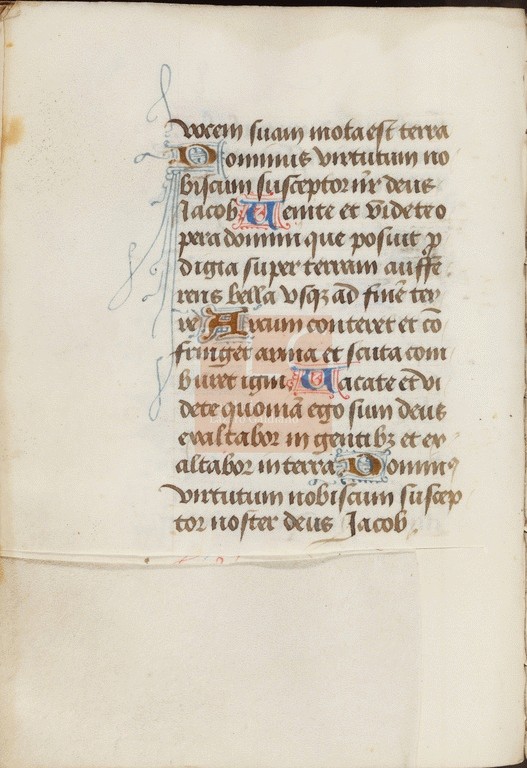 vocem suam mota est terra
Dominus virtutum no
biscum susceptor nr̄ deus
Jacob Venite et videte o
pera domini que posuit ꝓ
digia super terram auffe
rens bella vsqꝫ ad finē ter
re Arcum conteret et cō
fringet arma et scuta com
buret igni Vacate et vi
dete quoniā ego sum deus
exaltabor in gentibꝫ et ex
altabor in terra Dominꝰ
virtutum nobiscum suscep
tor noster deus Jacob.